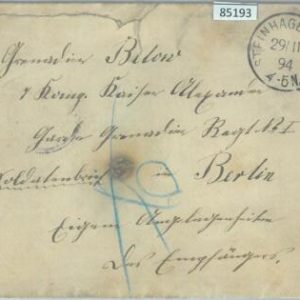 85193
STEINHAGE
29/11
94
4-5N
Grenadier Below
7 Komp. Kaiser Alexander
Garde Grenadier Regt. № 1
Soldatenbrief in Berlin
Eigene Angelegenheiten
des Empfängers.